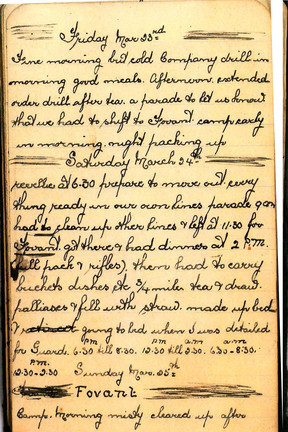 Friday Mar 23rd
Fine morning but cold Company drill in
morning good meals. Afternoon. extended
order drill after tea. a parade to let us know
that we had to shift to Fovant camp early
in morning. night packing up
Saturday March 24th
reveille at 6-30 prepare to move out every
thing ready in our own lines parade 9am
had to clean up other lines & left at 11.30 for
Fovant. got there & had dinners at 2 P.M.
full pack & rifles). then had to carry
buckets dishes etc 3/4 miles tea & draw
palliases & fill with straw. made up bed
& going to bed when I was detailed
for Guards. 6.30 till 8.30. 12.30 till 2.30. 6.30-8.30.
pm pm a.m a.m
P.M.
12.30-2.30 Sunday Mar. 25th
Fovant
Camp. Morning misty cleared up after